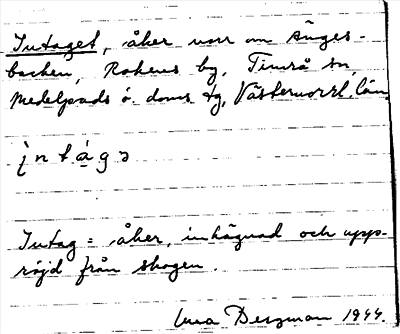 Intaget, åker norr om Änges-
backen, Rokens by, Timrå sn,
Medelpads ö. doms tg, Västernorrl. län.
intágə
Intag = åker, inhägnad och upp-
röjd från skogen.
Bergman 1944.